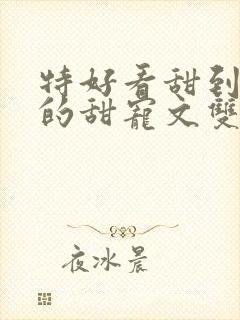 特好看甜到
的甜寵文雙
夜冰晨